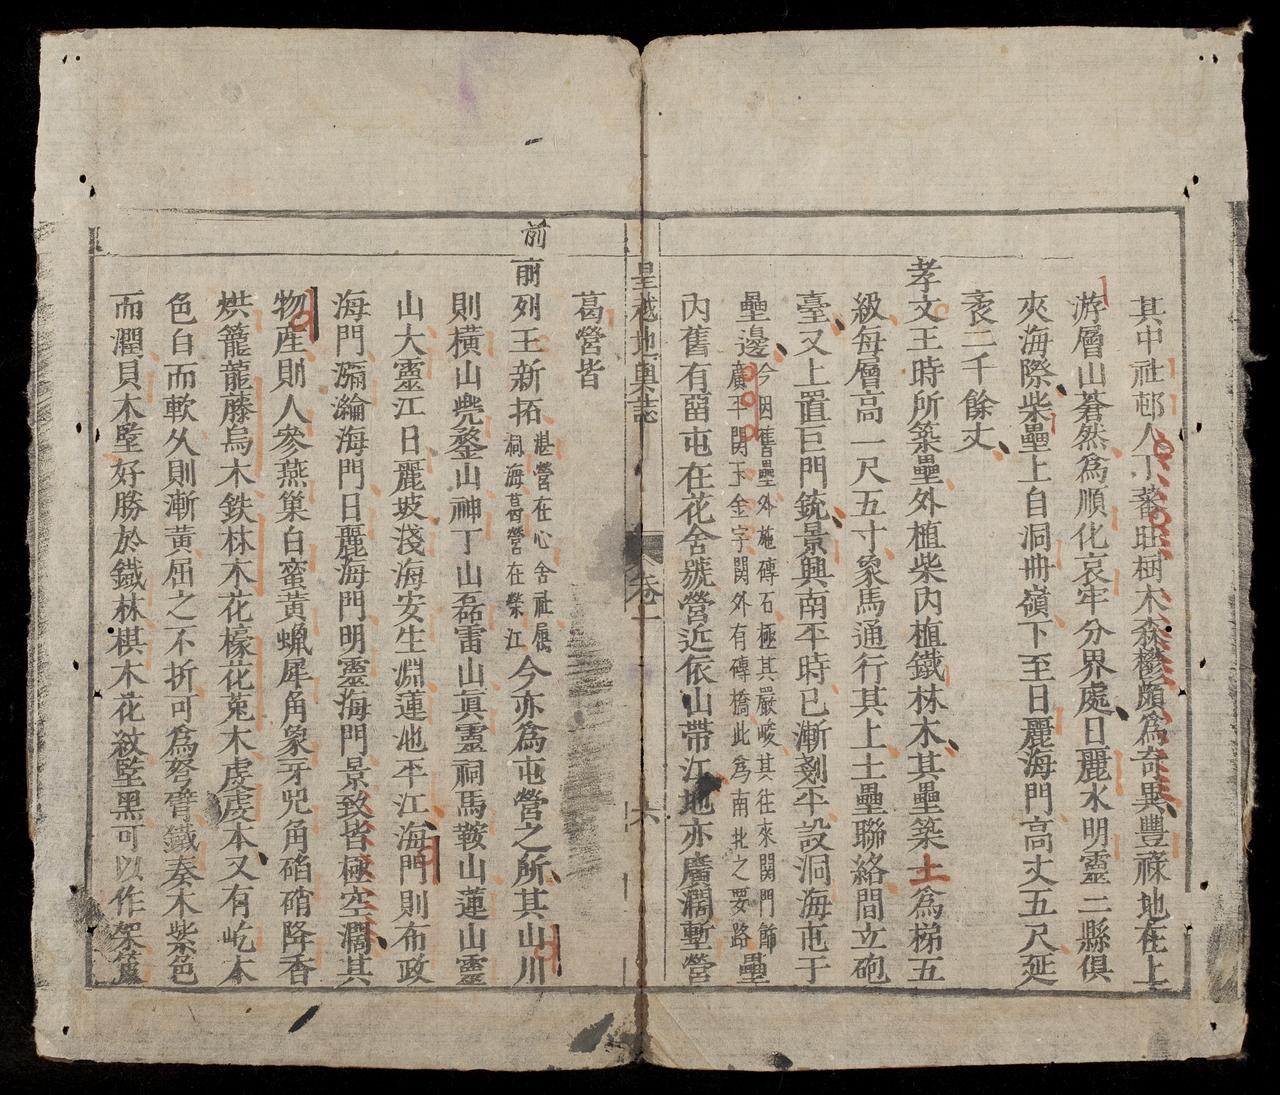 其中社邨人丁蕃旺樹木森鬱頗為奇異豐祿地在上
游層山蒼然為順化哀牢分界處日麗水明靈二縣俱
夾海際柴壘上自洞冊嶺下至日麗海門高丈五尺延
袤二千餘丈
孝文王時所築壘外植柴內植鐵林木其壘築土為梯五
級每層高一尺五寸象馬通行其上土壘聯絡間立砲
臺又上置巨門銃景興南平時已漸剗平設洞海屯于
壘邊今因舊壘外施磚石極其嚴峻其往來関門飾
廣平関下金字関外有磚橋此為南北之要路壘
內舊有畱屯在花舍號營近依山帶江地亦廣濶塹營
皇越地輿誌 卷一 六
葛營皆
前
前列王新拓湛營在心舍社屬
祠海葛營在榮江今亦為屯營之所其山川
則橫山兠鍪山神丁山磊雷山眞靈祠馬鞍山蓮山靈
山大靈江日麗坡淺海安生淵蓮池平江海門則布政
海門瀰淪海門日麗海門明靈海門景致皆極空濶其
物產則人參燕巢白蜜黃蠟犀角象牙兕角硝硝降香
烘籠龍藤烏木鉄林木花檺花菟木虔虔本又有屹本
色白而軟久則漸黃屈之不折可為弩臂鐵奏木紫色
而潤貝木堅好勝於鐵林棋木花紋堅黑可以作架簋